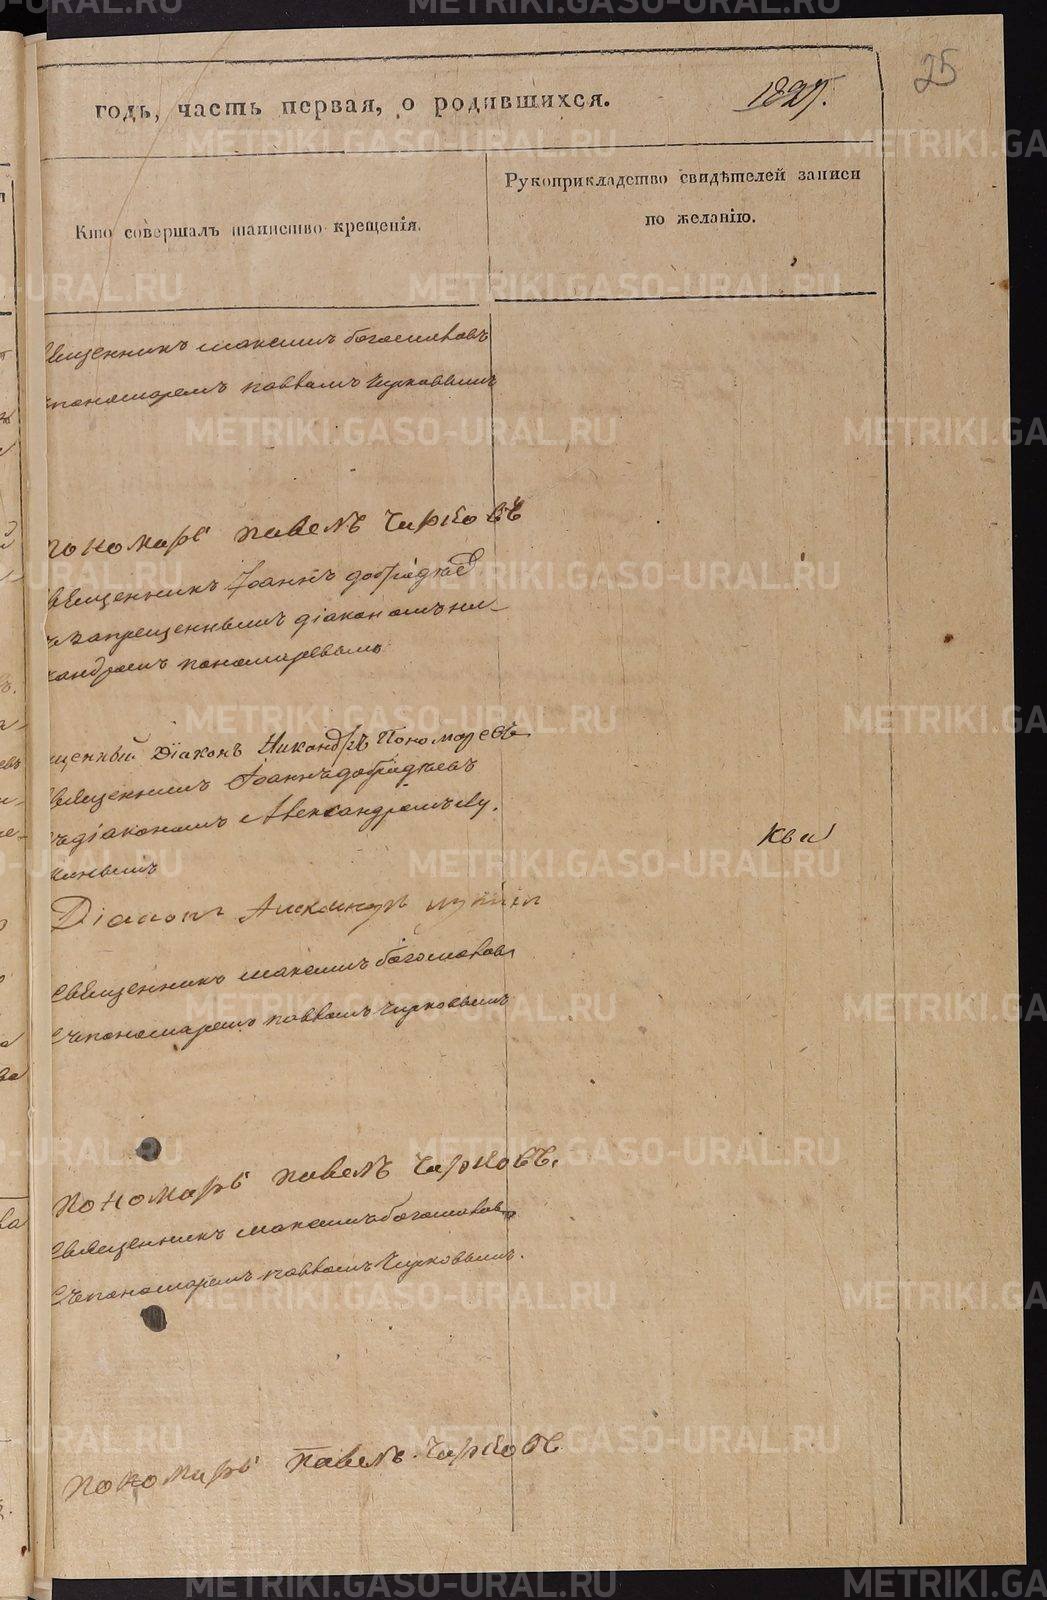 25
годъ, часть первая, о родившихся. 1847.
Кто совершалъ таинство крещенія.
Рукоприкладство свидѣтелей записи
по желанію.
священникъ максимъ богомоловъ
пономаремъ павломъ Чирковымъ
пономарь павелъ Чирковъ
священникъ Іоаннъ
съ запрещеннымъ діакономъ ни-
кандромъ пономаревымъ
щенный Діаконъ Никандръ Пономаревъ
священникъ Іоаннъ
съ діакономъ Александромъ лу.
кинымъ
ква
Діаконъ Александръ лукинъ
священникъ максимъ богомоловъ
съ пономаремъ павломъ Чирковымъ
пономарь павелъ Чирковъ.
священникъ максимъ богомоловъ
съ пономаремъ павломъ Чирковымъ.
пономарь павелъ Чирковъ
METRIKI.GASO-URAL.RU